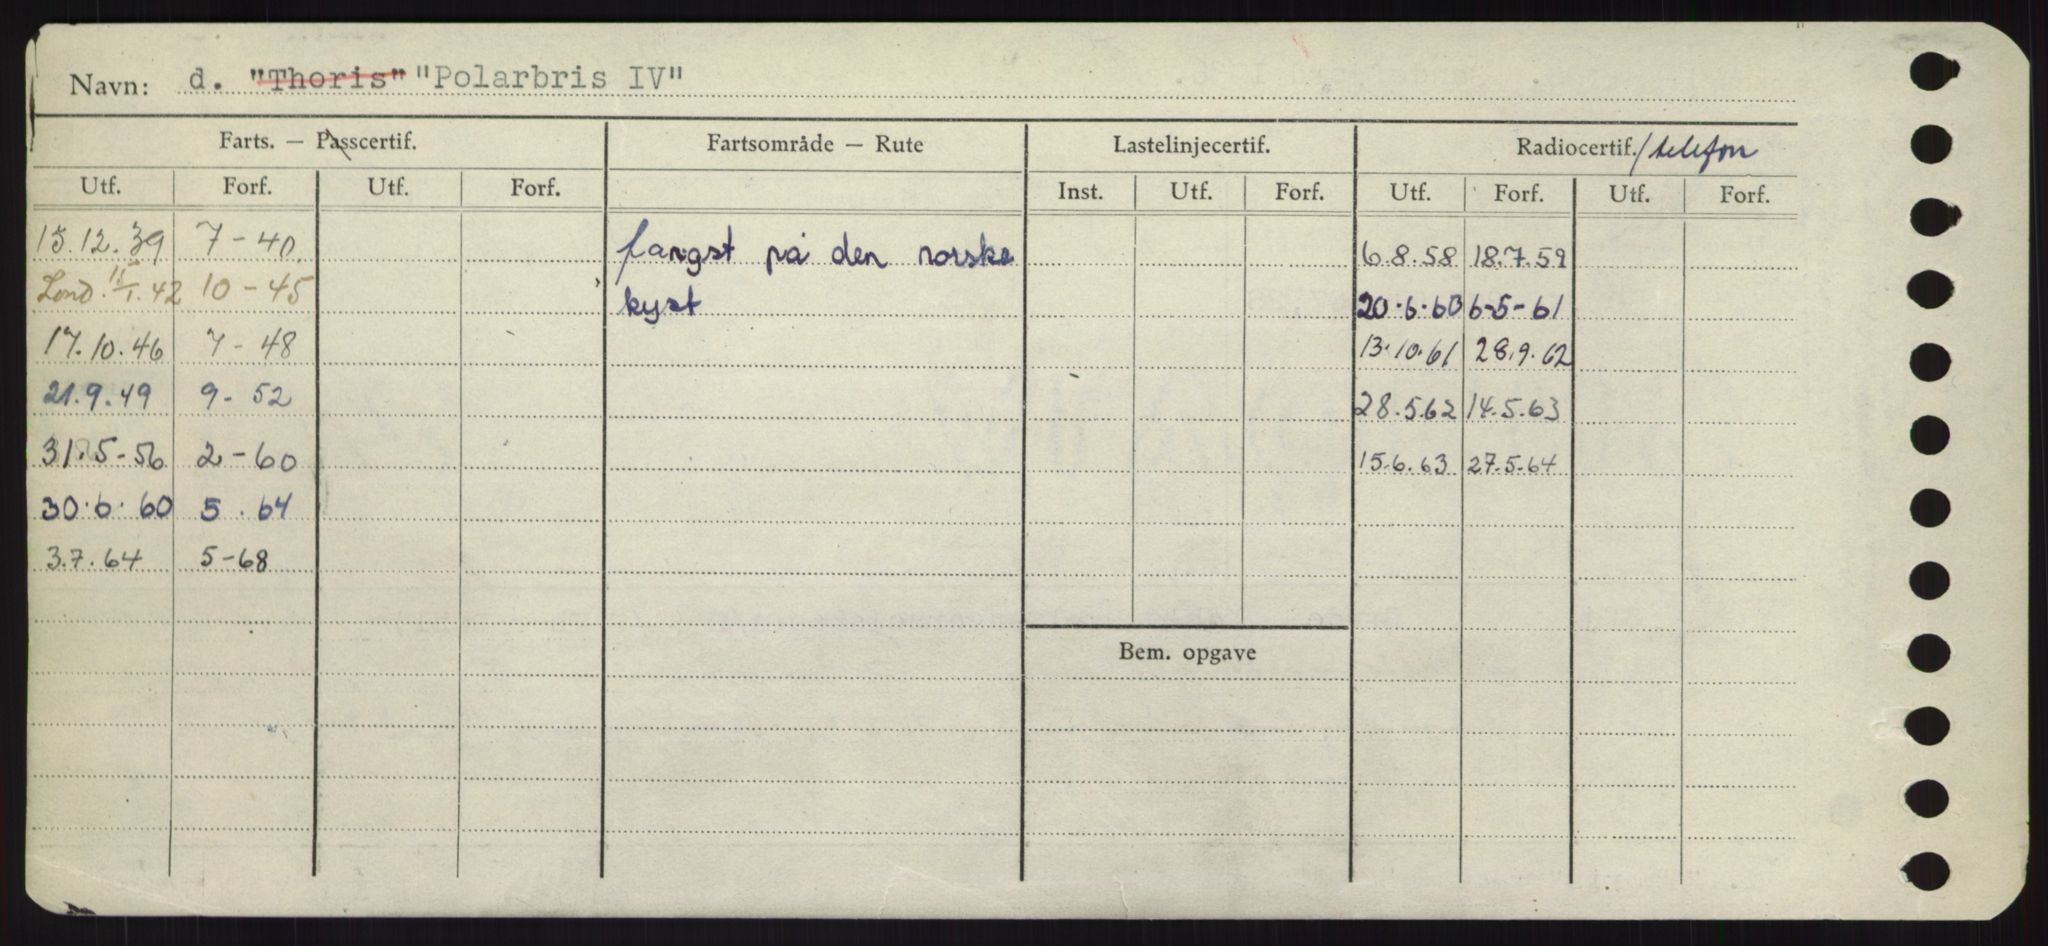 Navn: d. "Thoris" "Polarbris IV"
Farts. — Passcertif. Fartsområde — Rute Lastelinjecertif. Radiocertif./telefon
Utf. Forf. Utf. Forf. Inst. Utf. Forf. Utf. Forf. Utf. Forf.
15.12.39 7-40. fangst på den norske 6.8.58 18.7.59
Lond. 15/1.42 10-45 kyst 20.6.60 6-5-61
17.10.46 7-48 13.10.61 28.9.62
21.9.49 9-52 28.5.62 14.5.63
31.5-56 2-60 15.6.63 27.5.64
30.6.60 5.64
3.7.64 5-68
Bem. opgave